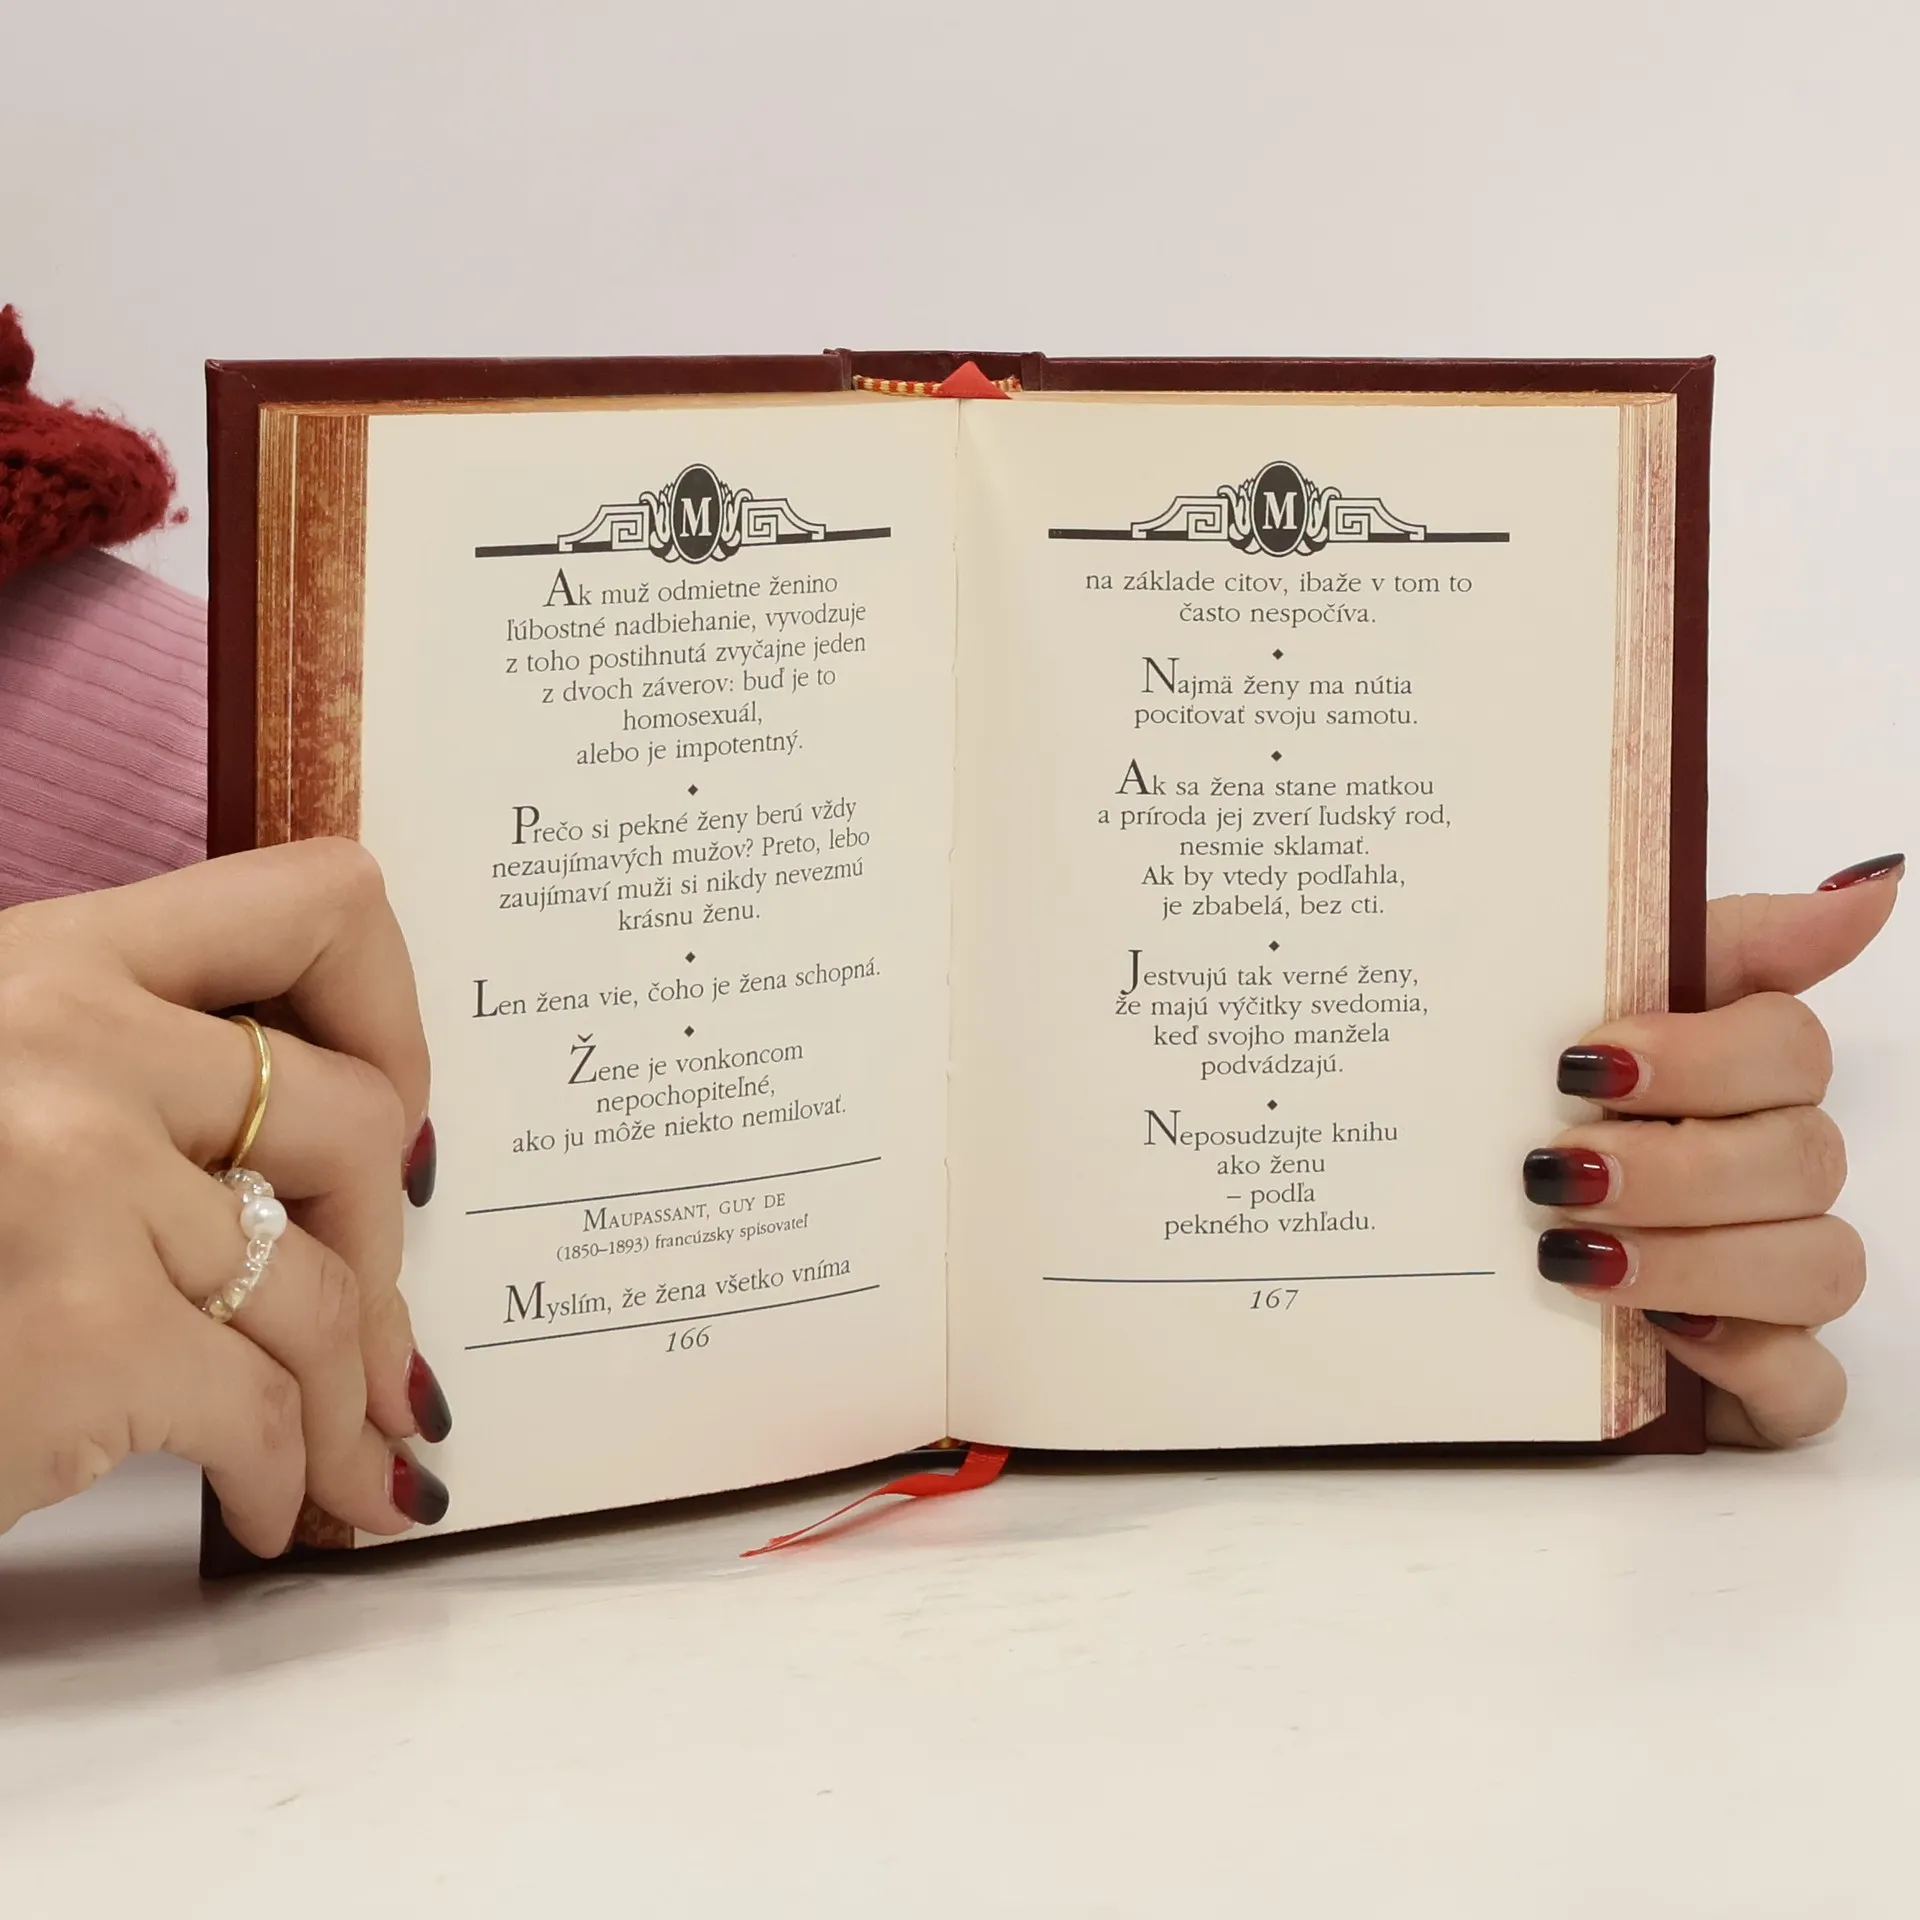 M
Ak muž odmietne ženino
ľúbostné nadbiehanie, vyvodzuje
z toho postihnutá zvyčajne jeden
z dvoch záverov: buď je to
homosexuál,
alebo je impotentný.
Prečo si pekné ženy berú vždy
nezaujímavých mužov? Preto, lebo
zaujímaví muži si nikdy nevezmú
krásnu ženu.
Len žena vie, čoho je žena schopná.
Žene je vonkoncom
nepochopiteľné,
ako ju môže niekto nemilovať.
MAUPASSANT, GUY DE
(1850–1893) francúzsky spisovateľ
Myslím, že žena všetko vníma
166
M
na základe citov, ibaže v tom to
často nespočíva.
Najmä ženy ma nútia
pociťovať svoju samotu.
Ak sa žena stane matkou
a príroda jej zverí ľudský rod,
nesmie sklamať.
Ak by vtedy podľahla,
je zbabelá, bez cti.
Jestvujú tak verné ženy,
že majú výčitky svedomia,
keď svojho manžela
podvádzajú.
Neposudzujte knihu
ako ženu
– podľa
pekného vzhľadu.
167